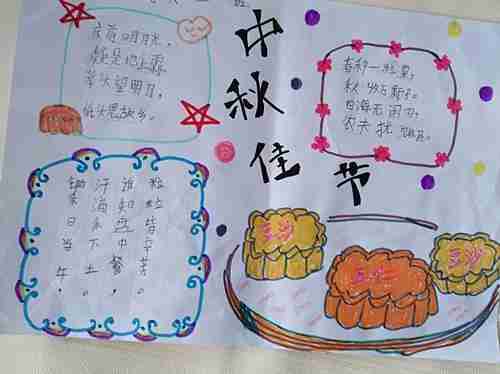 班
中秋佳节
床前明月光，
疑是地上霜。
举头望明月，
低头思故乡。
春种一粒粟，
秋收万颗子。
四海无闲田，
农夫犹饿死。
锄禾日当午。
汗滴禾下土。
谁知盘中餐，
粒粒皆辛苦。
豆沙
五仁
豆沙